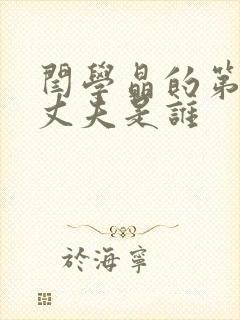 閆學晶的第
丈夫是誰
於海寧